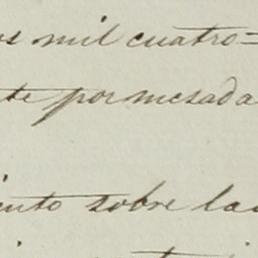 os mil cuatro=
te por mesada
ento sobre la